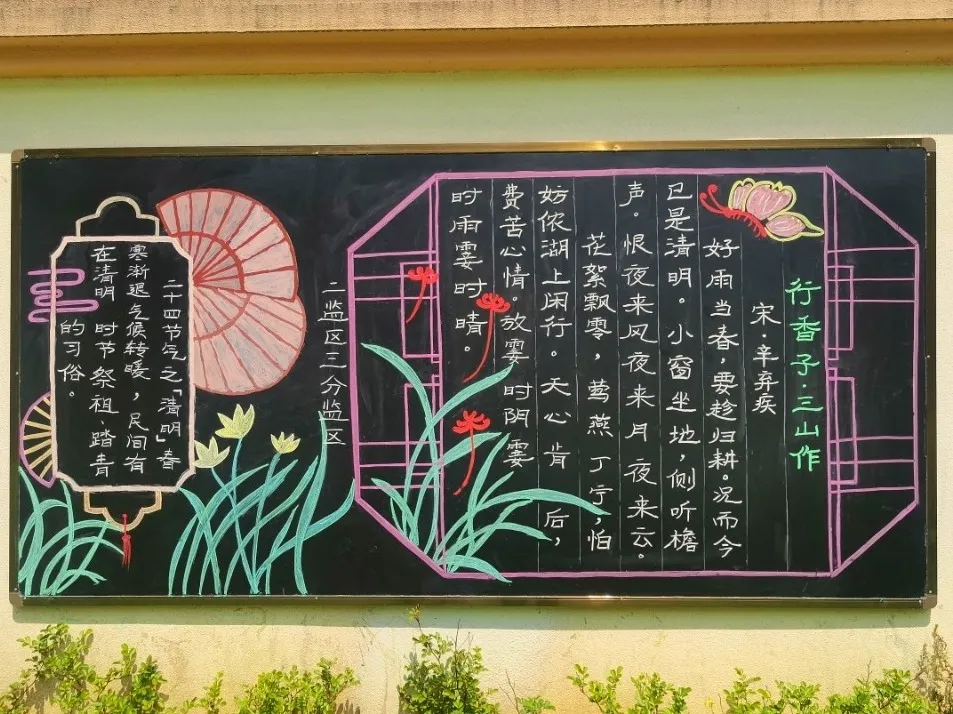 行香子·三山作
宋·辛弃疾
好雨当春，要趁归耕。况而今
已是清明。小窗坐地，侧听檐
声。恨夜来风夜来月夜来云。
花絮飘零，莺燕丁宁，怕
妨侬湖上闲行。天心肯后，
费苦心情。放霎时阴霎
时雨霎时晴。
二监区三分监区
二十四节气之「清明」春
寒渐退气候转暖，民间有
在清明时节祭祖、踏青
的习俗。